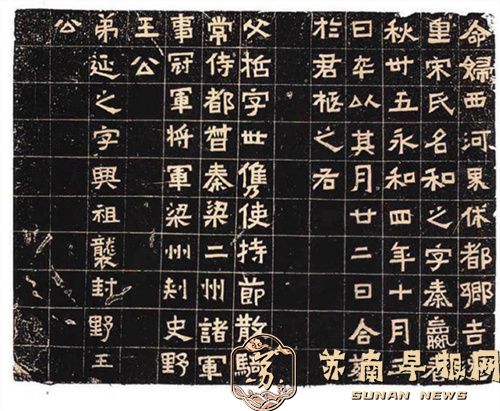 命婦西河界休都鄉吉
里宋氏名和之字秦嬴春
秋卅五永和四年十月三
日卒以其月廿二日合葬
於君柩之右
父字世儁使持節散騎
常侍都督秦梁二州諸軍
事冠軍將軍梁州刾史野
王公
弟延之字興祖襲封野王
公
苏南早报网
SUNAN NEWS